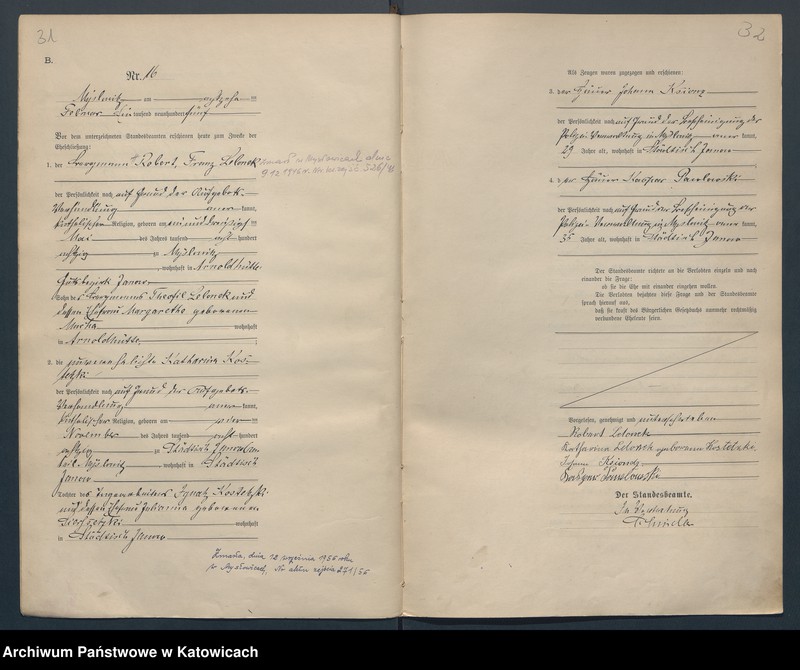 31
B.
Nr. 16
Myslowitz am achtzehn ten
Februar tausend neunhundert fünf
Vor dem unterzeichneten Standesbeamten erschienen heute zum Zwecke der
Eheschließung:
1. der Bergmann Robert Franz Lelonek
der Persönlichkeit nach auf Grund der Aufgebots-
Verhandlung kannt,
katholischer Religion, geboren am ein und dreißigsten
Mai des Jahres tausend acht hundert
achtzig zu Myslowitz
wohnhaft in Arnoldhütte
Gutsbezirk Janow
Sohn des Bergmanns Theofil Lelonek und
dessen Ehefrau Margarethe geborenen
wohnhaft
in Arnoldhütte
2. die unverehelichte Katharina Kos-
tetzki
der Persönlichkeit nach auf Grund der Aufgebots-
Verhandlung kannt,
katholischer Religion, geboren am
November des Jahres tausend acht hundert
achtzig zu Städtisch Janow
Myslowitz wohnhaft in Städtisch
Janow
Tochter des Ignatz Kostetzki
und dessen Ehefrau Julianna geborenen
wohnhaft
in Städtisch Janow
Zmarła, dnia 12 września 1956 roku
w Mysłowicach, Nr aktu zejścia 271/56
32
Als Zeugen waren zugezogen und erschienen:
3. der Häuer Johann Ksionz
der Persönlichkeit nach auf Grund der Bescheinigung der
Polizei-Verwaltung in Myslowitz kannt,
29 Jahre alt, wohnhaft in Städtisch Janow
4. der Häuer Kaspar Pawlowski
der Persönlichkeit nach auf Grund der Bescheinigung der
Polizei-Verwaltung in Myslowitz kannt,
Jahre alt, wohnhaft in Städtisch Janow
Der Standesbeamte richtete an die Verlobten einzeln und nach
einander die Frage:
ob sie die Ehe mit einander eingehen wollen.
Die Verlobten bejahten diese Frage und der Standesbeamte
sprach hierauf aus,
daß sie kraft des Bürgerlichen Gesetzbuchs nunmehr rechtmäßig
verbundene Eheleute seien.
Vorgelesen, genehmigt und unterschrieben
Robert Lelonek
Katharina Lelonek geborene Kostetzka
Johann Ksionz
Kaspar Pawlowski
Der Standesbeamte.
In Vertretung
Archiwum Państwowe w Katowicach